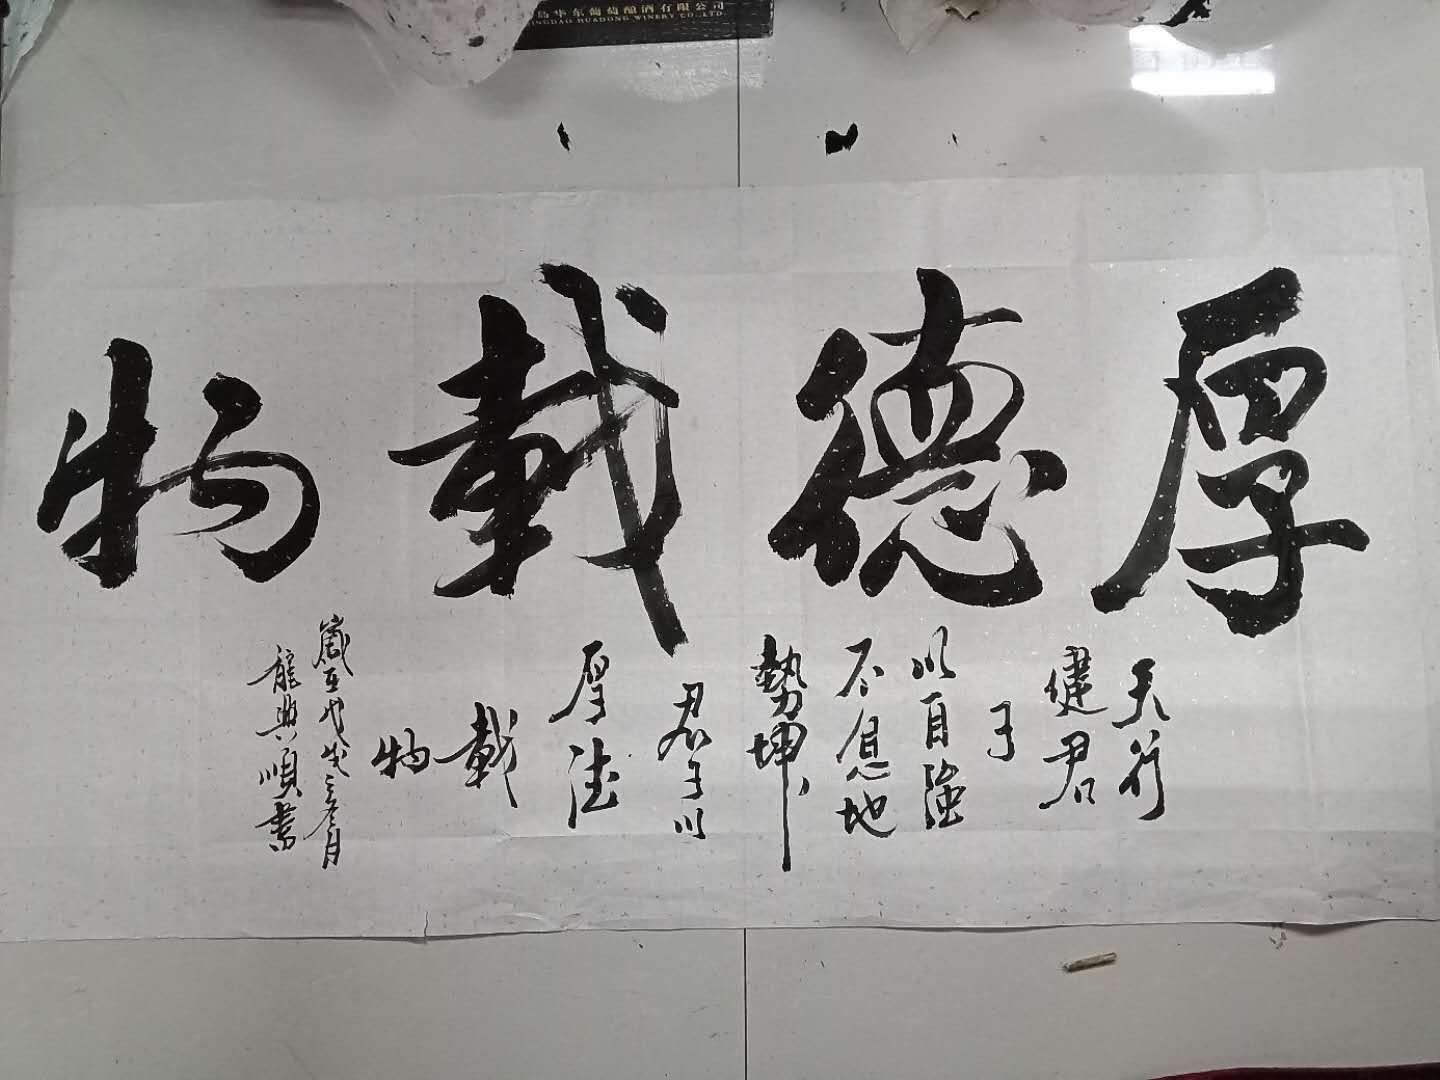 岛华东葡萄酿酒有限公司
INGDAO HUADONG WINERY CO.,LTD.
厚德載物
天行
健君
子
以自強
不息地
勢坤
君子以
厚德
載
物
歲在戊戌之冬月
龍興順書